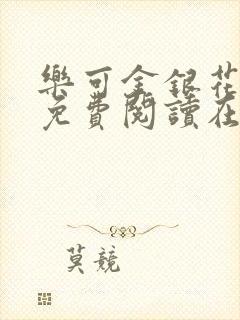 樂可金銀花
免費閱讀在
莫競